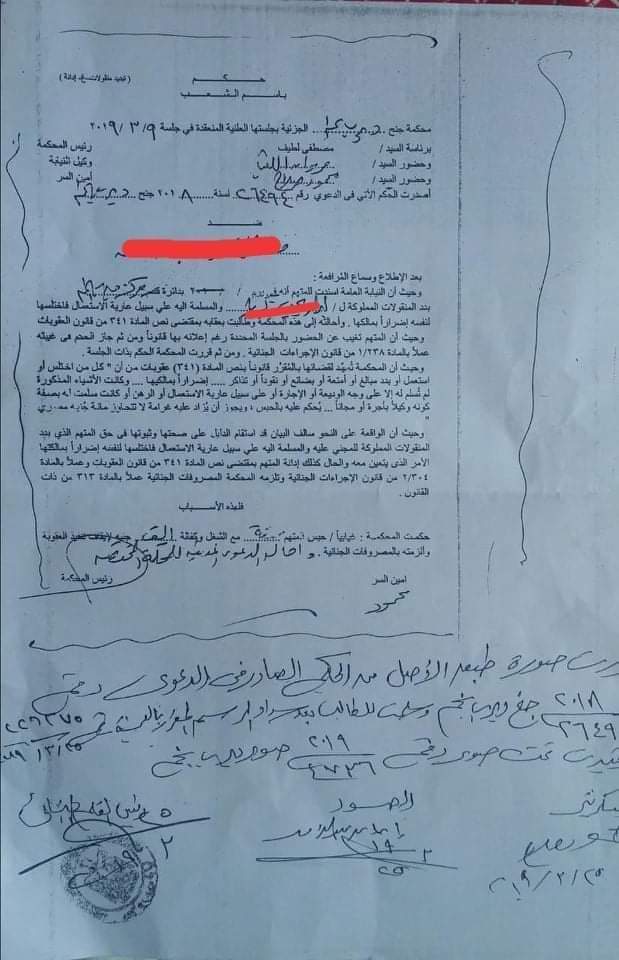 حكم
( تبديد منقولات - غ - إدانة )
باسم الشعب
محكمة جنح ديرب نجم الجزئية بجلستها العلنية المنعقدة في جلسة ٩ /٣ /٢٠١٩
برئاسة السيد / مصطفى لطيف رئيس المحكمة
وحضور السيد / وكيل النيابة
وحضور السيد / محمود صلاح أمين السر
أصدرت الحكم الآتي في الدعوي رقم ٢٦٤٩٤ لسنة ٢٠١٨ جنح ديرب نجم
ضد
بعد الإطلاع وسماع المرافعة :
وحيث أن النيابة العامة اسندت للمتهم أنه في يوم / بدائرة مركز ديرب نجم
بدد المنقولات المملوكة ل / والمسلمة اليه علي سبيل عارية الاستعمال فاختلسها
لنفسه إضراراً بمالكها . وأحالته إلى هذه المحكمة وطالبت بعقابه بمقتضى نص المادة ٣٤١ من قانون العقوبات
وحيث أن المتهم تغيب عن الحضور بالجلسة المحددة رغم إعلانه بها قانوناً ومن ثم جاز الحكم فى غيبته
عملاً بالمادة ١/٢٣٨ من قانون الإجراءات الجنائية . ومن ثم قررت المحكمة الحكم بذات الجلسة .
وحيث أن المحكمة تمهد لقضائها بالمقرر قانوناً بنص المادة (٣٤١) عقوبات من أن " كل من اختلس أو
استعمل أو بدد مبالغ أو أمتعة أو بضائع أو نقوداً أو تذاكر ..... إضراراً بمالكيها .... وكانت الأشياء المذكورة
لم تُسلم له إلا على وجه الوديعة أو الإجارة أو على سبيل عارية الاستعمال أو الرهن أو كانت سلمت له بصفة
كونه وكيلاً بأجرة أو مجاناً ... يُحكم عليه بالحبس ، ويجوز أن يُزاد عليه غرامة لا تتجاوز مائة جنيه مصري
وحيث أن الواقعة على النحو سالف البيان قد استقام الدليل على صحتها وثبوتها في حق المتهم الذي بدد
المنقولات المملوكة للمجني عليه والمسلمة الية علي سبيل عارية الاستعمال فاختلسها لنفسه إضراراً بمالكتها
الأمر الذى يتعين معه والحال كذلك إدانة المتهم بمقتضى نص المادة ٣٤١ من قانون العقوبات وعملاً بالمادة
٢/٣٠٤ من قانون الإجراءات الجنائية وتلزمه المحكمة المصروفات الجنائية عملاً بالمادة ٣١٣ من ذات
القانون .
فلهذه الأسباب
حكمت المحكمة : غيابياً / حبس المتهم سنة مع الشغل وكفالة جنيه لإيقاف تنفيذ العقوبة
وألزمته بالمصروفات الجنائية . واحالة الدعوى المدنية للمحكمة المختصة
امين السر رئيس المحكمة
محمود
صورة طبق الأصل من الحكم الصادر فى الدعوى رقم
٢٠١٨ جنح ديرب نجم وسلمت للطالب بعد سداد الرسم المقرر بالقسيمة
٢٦٤٩
تحت صور رقم ٢٠١٩ صور ديرب نجم
٢٠١٩/٣/٢٥